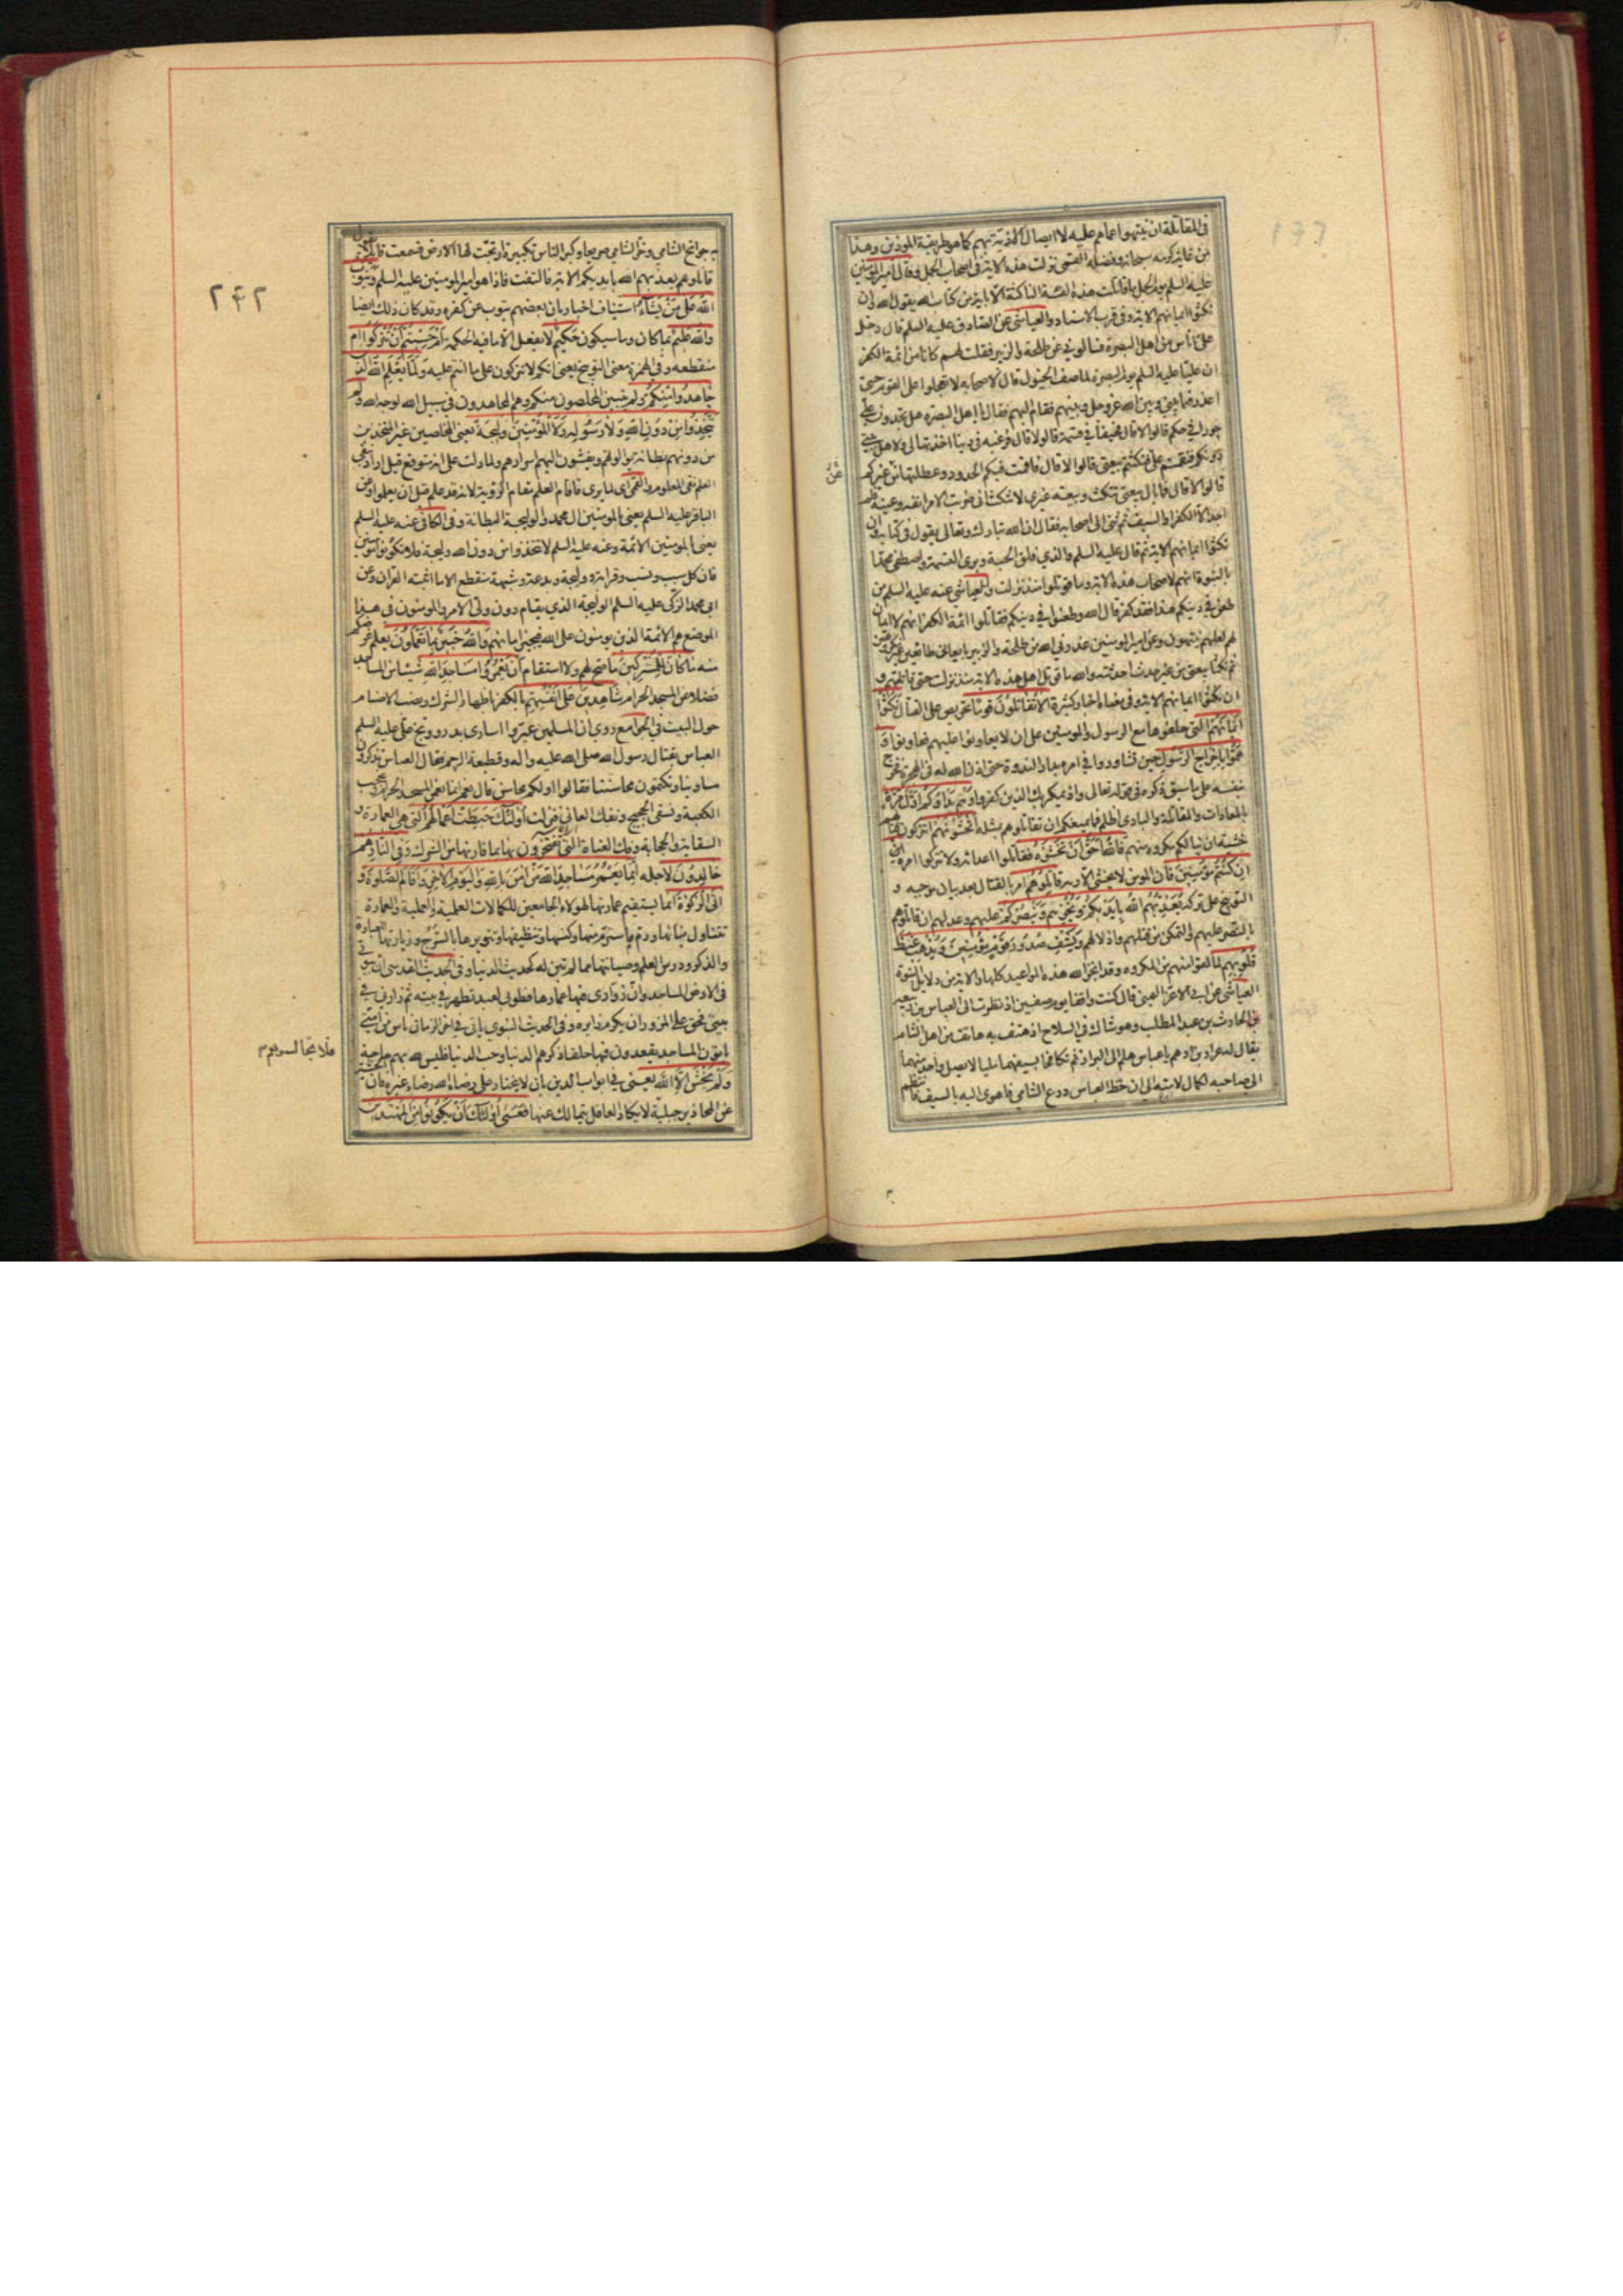 في المقاتلة ان ينتهوا عما هم عليه لا ايصال الاذية بهم كما هو طريقة الموذين وهذا
من غاية كرمه سبحانه وفضله القمي نزلت هذه الاية في اصحاب الجمل وقال امير المومنين
عليه السلم يوم الجمل ما قاتلت هذه الفئة الناكثة الا باية من كتاب الله يقول الله وان
نكثوا ايمانهم الاية وفي قرب الاسناد والعياشي عن الصادق عليه السلم قال دخل
علي اناس من اهل البصرة فسالوني عن طلحة والزبير فقلت لهم كانا من ائمة الكفر
ان عليا عليه السلم يوم البصرة لما صف الخيول قال لاصحابه لا تعجلوا على القوم حتى
اعذر فيما بيني وبين الله عز وجل وبينهم فقام اليهم فقال يا اهل البصرة هل تجدون علي
جورا في حكم قالوا لا قال فحيفا في قسمة قالوا لا قال فرغبة في دنيا اخذتها لي ولاهل بيتي
دونكم فنقمتم علي فنكثتم بيعتي قالوا لا قال فاقمت فيكم الحدود وعطلتها عن غيركم
قالوا لا قال فما بال بيعتي تنكث وبيعة غيري لا تنكث اني ضربت الامر انفه وعينه فلم
اجد الا الكفر او السيف ثم ثنى الى اصحابه فقال ان الله تبارك وتعالى يقول في كتابه وان
نكثوا ايمانهم الاية ثم قال عليه السلم والذي فلق الحبة وبرئ النسمة واصطفى محمدا
بالنبوة انهم لاصحاب هذه الاية وما قوتلوا منذ نزلت والعياشي عنه عليه السلم من
طعن في دينكم هذا فقد كفر قال الله وطعنوا في دينكم فقاتلوا ائمة الكفر انهم لا ايمان
لهم لعلهم ينتهون وعن امير المومنين عذرني الله من طلحة والزبير بايعاني طائعين غير مكرهين
ثم نكثا بيعتي من غير حدث احدثته والله ما قوتل اهل هذه الاية منذ نزلت حتى قاتلتهم و
ان نكثوا ايمانهم الاية وفي معناه اخبار كثيرة الا تقاتلون قوما تحريص على القتال نكثوا
ايمانهم التي حلفوها مع الرسول والمومنين على ان لا يعاونوا عليهم فعاونوا و
هموا باخراج الرسول حين تشاوروا في امره بدار الندوة حتى اذن الله له في الهجرة فخرج
بنفسه على ما سبق ذكره في قوله تعالى واذ يمكر بك الذين كفروا وهم بدؤكم اول مرة
بالمعادات والمقاتلة والبادي اظلم فما يمنعكم ان تقاتلوهم بمثله اتخشونهم اتتركون قتالهم
خشية ان ينالكم مكروه منهم فالله احق ان تخشوه فقاتلوا اعدائه ولا تتركوا امره
ان كنتم مؤمنين فان المومن لا يخشى الا ربه قاتلوهم امر بالقتال بعد بيان موجبه و
التوبيخ على تركه يعذبهم الله بايديكم ويخزهم وينصركم عليهم وعد لهم ان قاتلوهم
بالنصر عليهم والتمكن من قتلهم واذلالهم ويشف صدور قوم مؤمنين ويذهب غيظ
قلوبهم لما لقوا منهم من المكروه وقد انجز الله هذه المواعيد كلها والاية من دلايل النبوة
العياشي عن ابي الاغر التميمي قال كنت واقفا يوم صفين اذ نظرت الى العباس بن ربيعة
بن الحارث بن عبد المطلب وهو شاك في السلاح اذ هتف به هاتف من اهل الشام
يقال له عرار بن ادهم يا عباس هلم الى البراز ثم تكافحا بسيفهما مليا لا يصل واحد منهما
الى صاحبه لكمال لامته الى ان لحظ العباس درع الشامي فاهوى اليه بالسيف فانتظم
به جوانح الشامي وخر الشامي صريعا وكبر الناس تكبيرة ارتجت لها الارض فسمعت قائلا يقول
قاتلوهم يعذبهم الله بايديكم الاية فالتفت فاذا هو امير المومنين عليه السلم ويتوب
الله على من يشاء استيناف اخبار بان بعضهم يتوب عن كفره وقد كان ذلك ايضا
والله عليم بما كان وما سيكون حكيم لا يفعل الا ما فيه الحكمة ام حسبتم ان تتركوا ام
منقطعة وفي الهمزة معنى التوبيخ يعني انكم لا تتركون على ما انتم عليه ولما يعلم الله الذين
جاهدوا منكم ولم يتبين المخلصون منكم وهم المجاهدون في سبيل الله لوجه الله ولم
يتخذوا من دون الله ولا رسوله ولا المؤمنين وليجة يعني المخلصين غير المتخذين
من دونهم بطانة يوالونهم ويفشون اليهم اسرارهم ولما دلت على انه متوقع قيل اراد بنفي
العلم نفي المعلوم والقمي اي لما يرى فاقام العلم مقام الرؤية لانه قد علم قبل ان يعلموا وعن
الباقر عليه السلم يعني بالمومنين ال محمد والوليجة البطانة وفي الكافي عنه عليه السلم
يعني بالمومنين الائمة وعنه عليه السلم لا تتخذوا من دون الله وليجة فلا تكونوا مومنين
فان كل سبب ونسب وقرابة ووليجة وبدعة وشبهة منقطع الا ما اثبته القران وعن
ابي محمد الزكي عليه السلم الوليجة الذي يقام دون ولي الامر والمومنون في هذا
الموضع هم الائمة الذين يومنون على الله فيجيز امانهم والله خبير بما تعملون يعلم غرضكم
منه ما كان للمشركين ما صح لهم ولا استقام ان يعمروا مساجد الله شيئا من المساجد
فضلا عن المسجد الحرام شاهدين على انفسهم بالكفر باظهار الشرك ونصب الاصنام
حول البيت في الجوامع روي ان المسلمين عيروا اسارى بدر ووبخ علي عليه السلم
العباس بقتال رسول الله صلى الله عليه واله وقطيعة الرحم فقال العباس تذكرون
مساوينا وتكتمون محاسننا فقالوا اولكم محاسن قال نعم انا لنعمر المسجد الحرام ونحجب
الكعبة ونسقي الحجيج ونفك العاني فنزلت اولئك حبطت اعمالهم التي هي العمارة و
السقاية والحجابة وفك العناة التي يفتخرون بها بما قارنها من الشرك وفي النار هم
خالدون لاجله انما يعمر مساجد الله من امن بالله واليوم الاخر واقام الصلوة و
اتى الزكوة انما يستقيم عمارتها لهولاء الجامعين للكمالات العلمية والعملية والعمارة
تتناول بنائها ورم ما استرم منها وكنسها وتنظيفها وتنويرها بالسرج وزيارتها للعبادة
والذكر ودرس العلم وصيانتها مما لم تبن له كحديث الدنيا وفي الحديث القدسي ان بيوتي
في الارض المساجد وان زواري فيها عمارها فطوبى لعبد تطهر في بيته ثم زارني في
بيتي فحق على المزور ان يكرم زايره وفي الحديث النبوي ياتي في اخر الزمان ناس من امتي
ياتون المساجد يقعدون فيها حلقا ذكرهم الدنيا وحب الدنيا فليس لله بهم حاجة
فلا تجالسوهم
ولم يخش الا الله يعني في ابواب الدين بان لا يختار على رضاء الله رضاء غيره فان الخشية
عن المحاذير جبلية لا يكاد العاقل يتمالك عنها فعسى اولئك ان يكونوا من المهتدين
٢٤٢